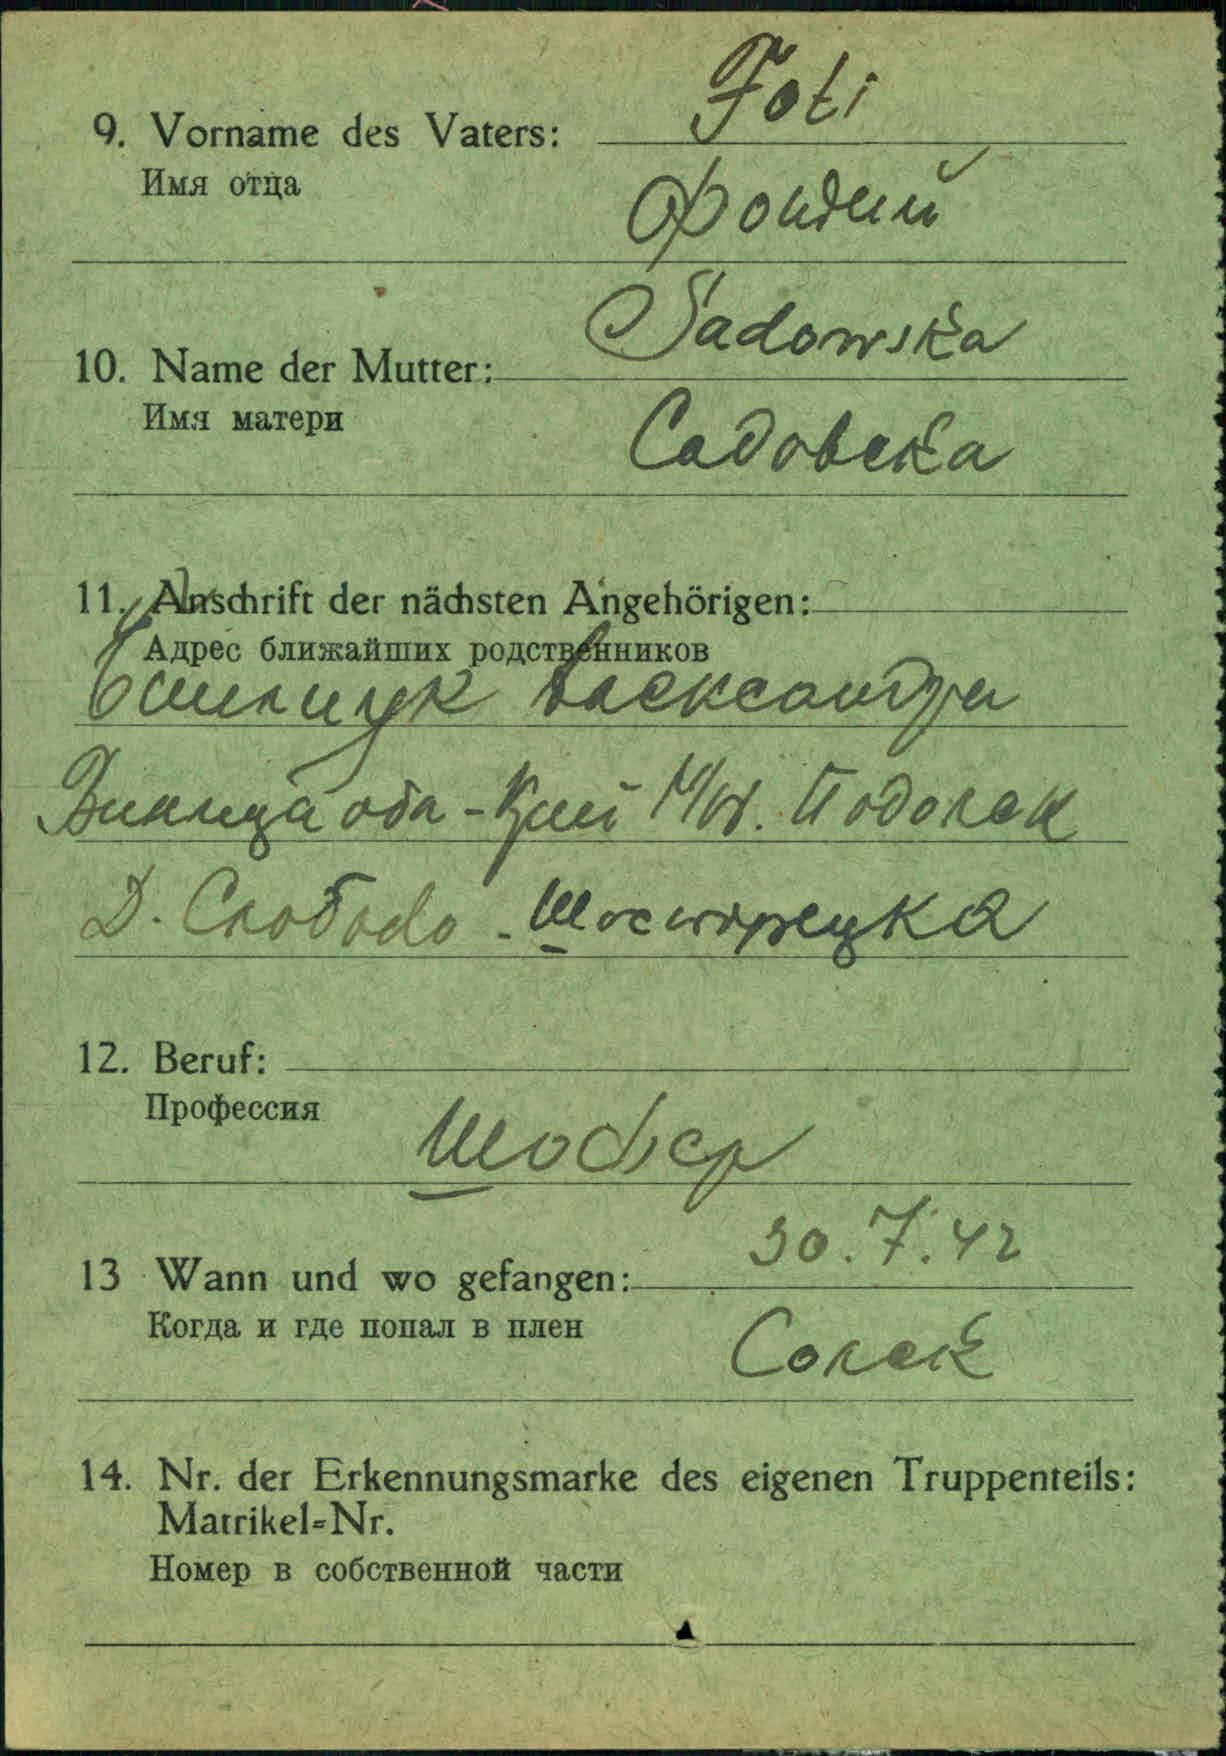 9. Vorname des Vaters: Foti
Имя отца Фотий
10. Name der Mutter: Sadowska
Имя матери Садовска
11. Anschrift der nächsten Angehörigen:
Адрес ближайших родственников
Александра
обл -
Д. Слобода - Шостгрецка
12. Beruf:
Профессия Шофер
13 Wann und wo gefangen: 30.7.42
Когда и где попал в плен Солск
14. Nr. der Erkennungsmarke des eigenen Truppenteils:
Matrikel-Nr.
Номер в собственной части